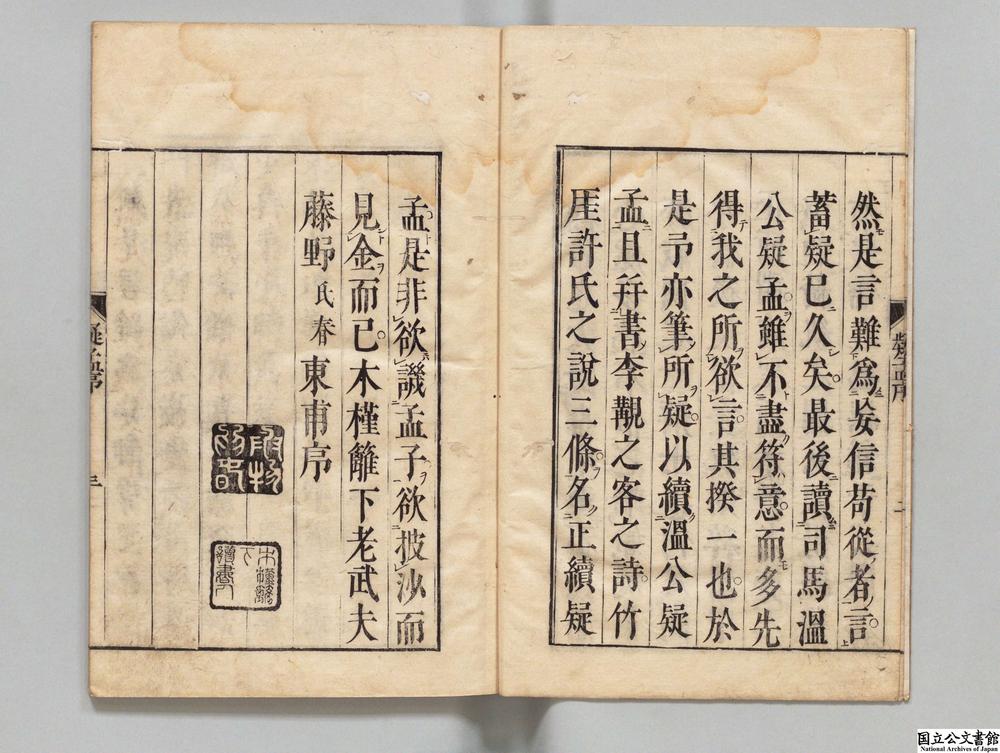 然是言難為妄信苟從者言
蓄疑已久矣最後讀司馬溫
公疑孟雖不盡符意而多先
得我之所欲言其揆一也於
是予亦筆所疑以續溫公疑
孟且幷書李覯之客之詩竹
厓許氏之說三條名正續疑
疑孟序
二
孟是非欲譏孟子欲披沙而
見金而已木槿籬下老武夫
藤野氏春東甫序
疑孟序
三
国立公文書館
National Archives of Japan